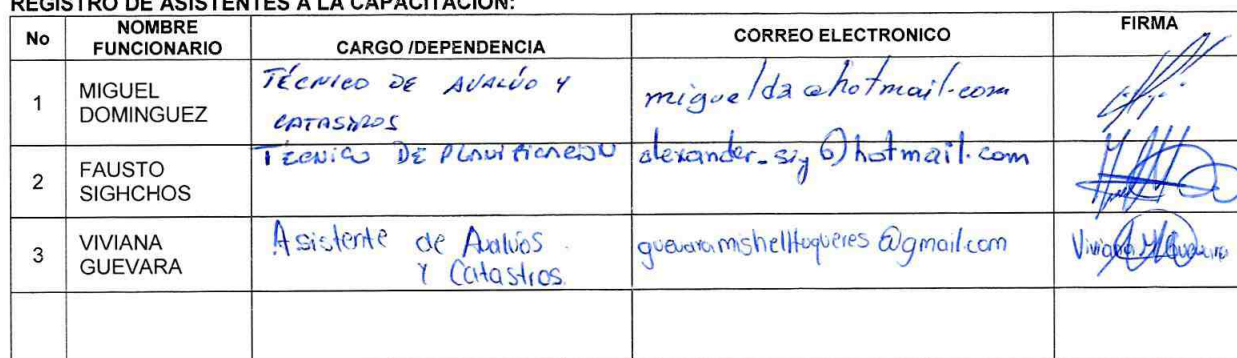 REGISTRO DE ASISTENTES A LA CAPACITACIÓN:
No
NOMBRE
FUNCIONARIO
CARGO /DEPENDENCIA
CORREO ELECTRONICO
FIRMA
1
MIGUEL
DOMINGUEZ
TÉCNICO DE AVALÚO Y
CATASTROS
miguelda@hotmail.com
2
FAUSTO
SIGHCHOS
TECNICO DE PLANIFICACION
alexander_sig@hotmail.com
3
VIVIANA
GUEVARA
Asistente de Avalúos
Y Catastros.
@gmail.com